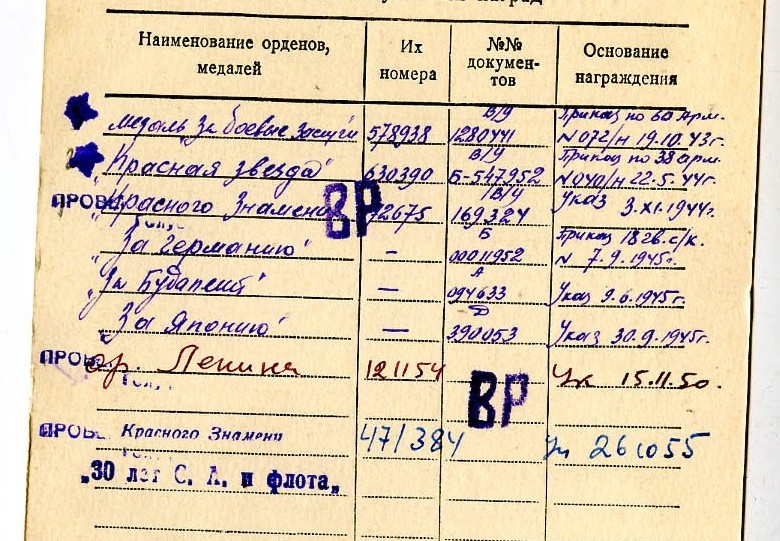 Наименование орденов, медалей
Их номера
№№ докумен-тов
Основание награждения
В/9 Приказ по 60 Арм.
Медаль „За боевые заслуги" 578938 1280441 N 072/н 19.10.43г.
В/9 Приказ по 38 арм.
„Красная звезда" 630390 Б-547952 N 040/н 22.5.44г.
ПРОВЕ „Красного Знамени 169324 Указ 3.XI.1944г.
ВР
Б Приказ 18 гв. с/к.
„За Германию" — 00011952 N 7.9.1945г.
А
„За Будапешт" — 094633 Указ 9.6.1945г.
„За Японию" — 390053 Указ 30.9.1945г.
ПРОВЕ ор. Ленина 121154 Ук 15.11.50.
ВР
ПРОВЕ Красного Знамени 47/384
„30 лет С. А. и флота„